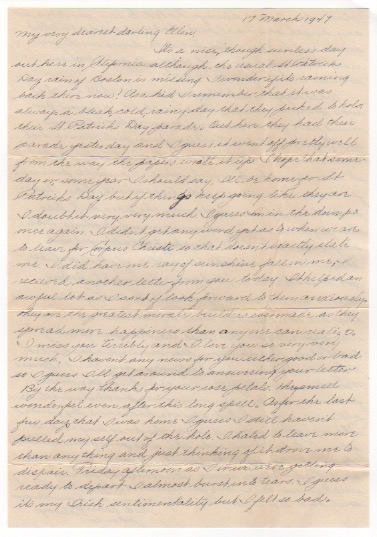 17 March 1947
My very dearest darling Ellen,
It's a nice, though sunless day
out here in California although the usual St Patricks
Day rainy Boston is missing. I wonder if it's raining
back there now? As a kid I remember that it was
always a bleak, cold, rainy day that they picked to hold
their St Patricks Day parade. But here they had their
parade yesterday and I guess it went off pretty well
from the way the papers wrote it up. I hope that some-
day or some year I should say, I'll be home for St
Patricks Day but if things keep going like they are
I doubt it very, very much. I guess I'm in the dumps
once again. I didn't get any word yet as to when we are
to leave for Corpus Christi so that doesn't exactly elate
me. I did have one ray of sunshine fall on me, I
received another letter from you today. It helped an
awful lot as I sort of look forward to them anxiously,
they are the greatest morale builders ever made as they
spread more happiness than anyone can realize.
I miss you terribly and I love you so very very
much. I haven't any news for you either good or bad
so I guess I'll get around to answering your letter.
By the way thanks for your rose petals, they smell
wonderful even after this long spell. As for the last
few days that I was home I guess I still haven't
pulled myself out of the hole. I hated to leave more
than anything and just thinking of it drove me to
despair. Friday afternoon as I was getting
ready to depart I almost burst into tears. I guess
it's my Irish sentimentality but I felt so bad.